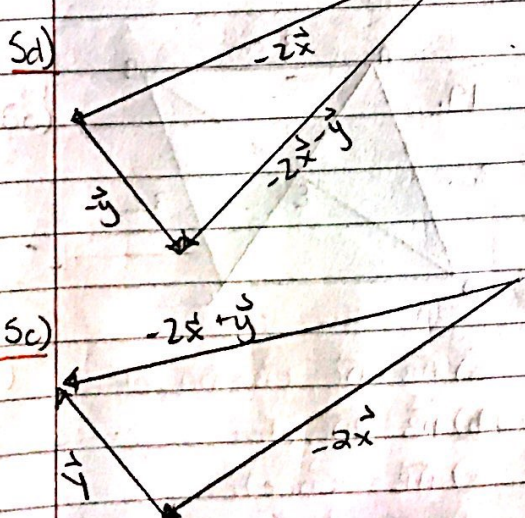 5d)
-2x⃗
-2x⃗-y⃗
-y⃗
5c)
-2x⃗+y⃗
-2x⃗
y⃗